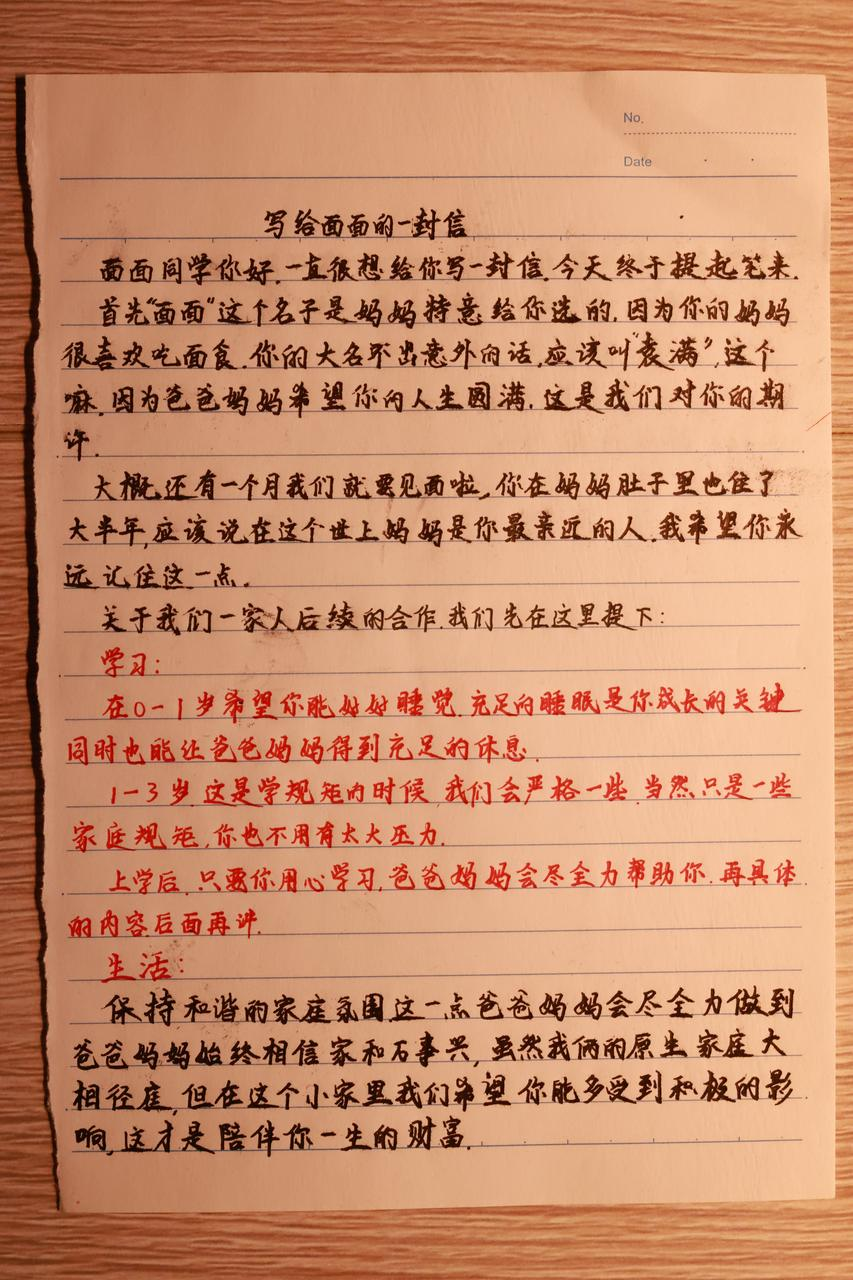 No.
Date
写给面面的一封信
面面同学你好.一直很想给你写一封信.今天终于提起笔来.
首先"面面"这个名子是妈妈特意给你选的.因为你的妈妈
很喜欢吃面食.你的大名不出意外的话.应该叫"袁满",这个
嘛.因为爸爸妈妈希望你的人生圆满.这是我们对你的期
许.
大概还有一个月我们就要见面啦,你在妈妈肚子里也住了
大半年,应该说在这个世上妈妈是你最亲近的人.我希望你永
远记住这一点.
关于我们一家人后续的合作.我们先在这里提下:
学习:
在0-1岁希望你能好好睡觉.充足的睡眠是你成长的关键
同时也能让爸爸妈妈得到充足的休息.
1-3岁.这是学规矩的时候,我们会严格一些.当然只是一些
家庭规矩,你也不用有太大压力.
上学后.只要你用心学习,爸爸妈妈会尽全力帮助你.再具体
的内容后面再讲.
生活:
保持和谐的家庭氛围这一点爸爸妈妈会尽全力做到
爸爸妈妈始终相信家和万事兴,虽然我俩的原生家庭大
相径庭,但在这个小家里我们希望你能多受到积极的影
响,这才是陪伴你一生的财富.